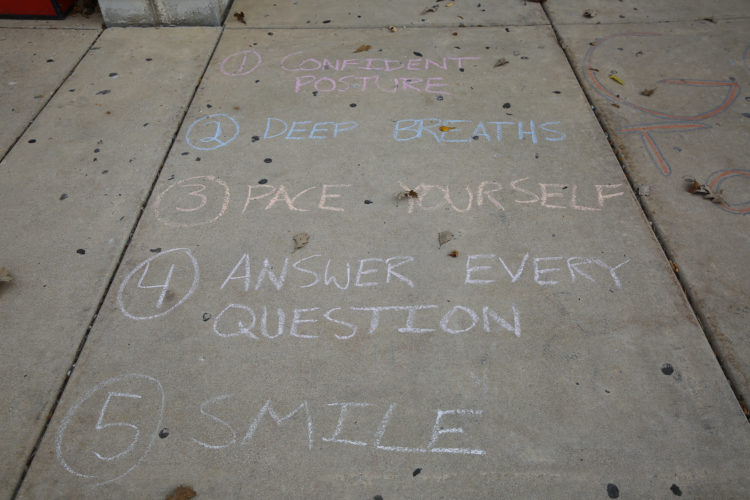 1 CONFIDENT
POSTURE
2 DEEP BREATHS
3 PACE YOURSELF
4 ANSWER EVERY
QUESTION
5 SMILE